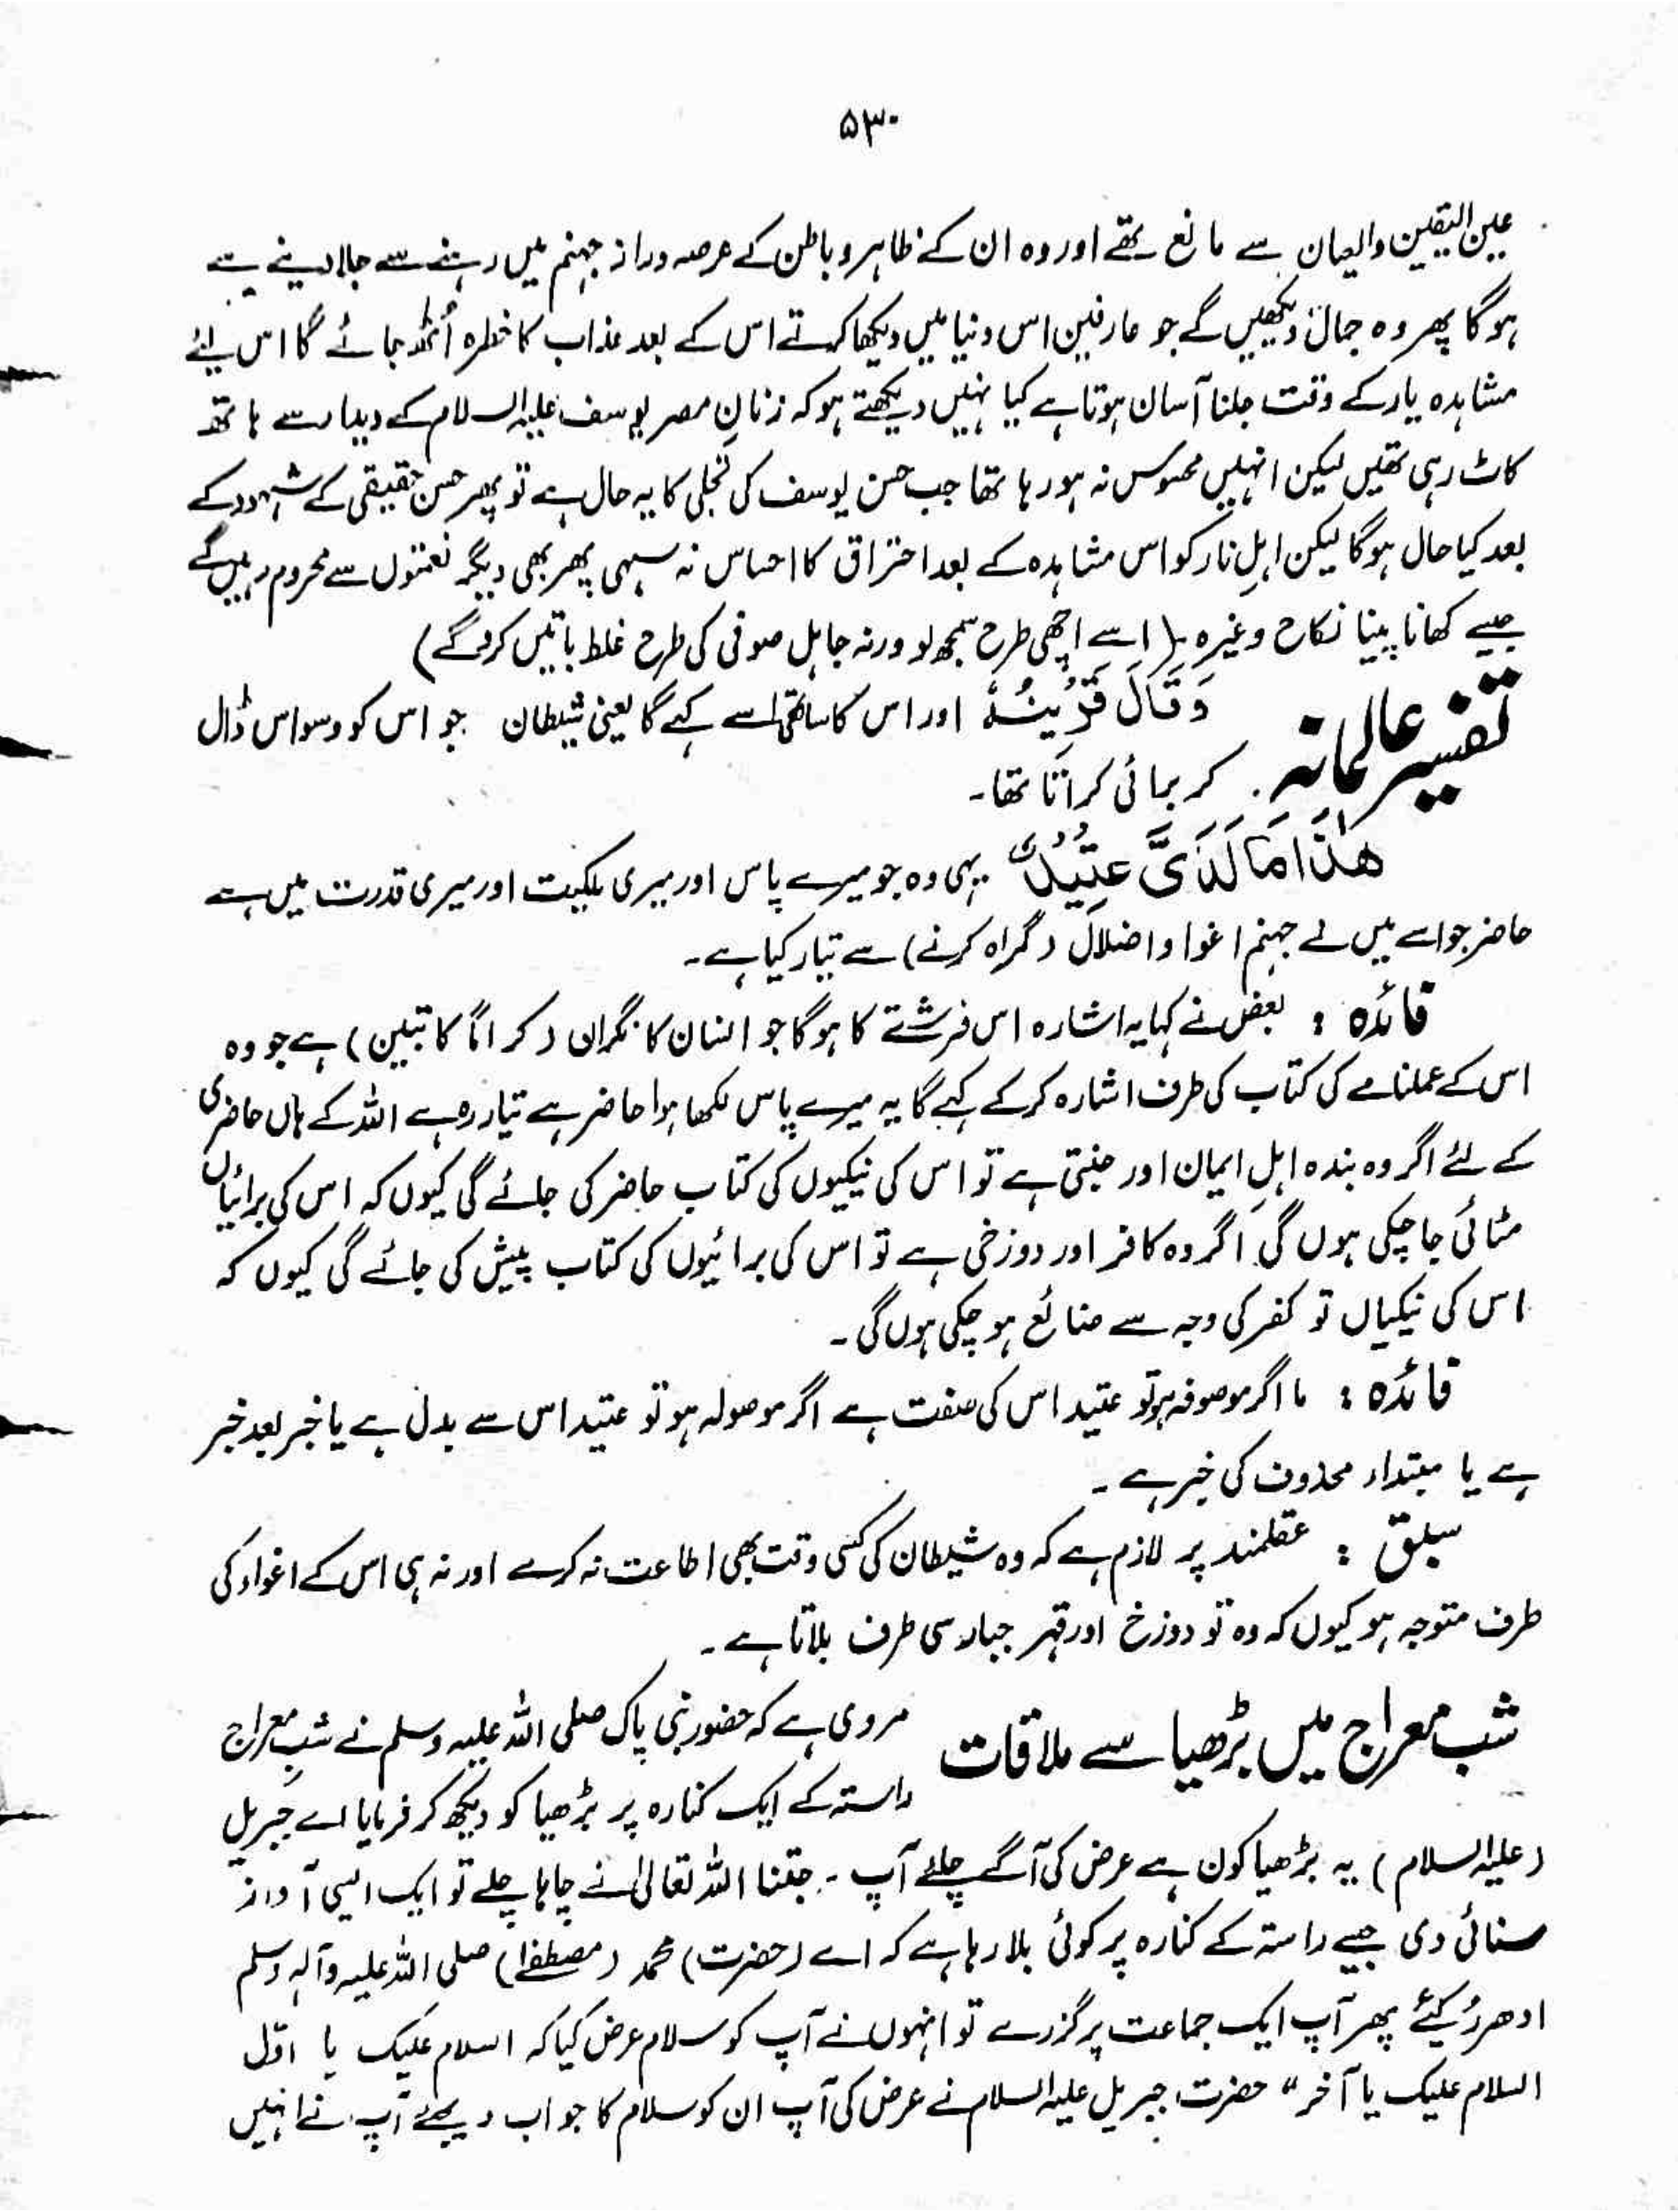 ۵۳۰
عین الیقین والعیان سے مانع تھے اور وہ ان کے ظاہر و باطن کے عرصہ دراز جہنم میں رہنے سے جلا دینے سے
ہوگا پھر وہ جمال دیکھیں گے جو عارفین اس دنیا میں دیکھا کرتے اس کے بعد عذاب کا خطرہ اُٹھ جائے گا اس لیئے
مشاہدہ یار کے وقت جلنا آسان ہوتا ہے کیا نہیں دیکھتے ہو کہ زنانِ مصر یوسف علیہ السلام کے دیدار سے ہاتھ
کاٹ رہی تھیں لیکن انہیں محسوس نہ ہو رہا تھا جب حسن یوسف کی تجلی کا یہ حال ہے تو پھر حسن حقیقی کے شہود کے
بعد کیا حال ہوگا لیکن اہلِ نار کو اس مشاہدہ کے بعد احتراق کا احساس نہ سہی پھر بھی دیگر نعمتوں سے محروم رہیں گے
جیسے کھانا پینا نکاح وغیرہ۔ (اسے اچھی طرح سمجھ لو ورنہ جاہل صوفی کی طرح غلط باتیں کروگے)
تفسیر عالمانہ وَقَالَ قَرِیْنُہٗ اور اس کا ساتھی اسے کہے گا یعنی شیطان جو اس کو وسواس ڈال
کر برائی کراتا تھا۔
ھٰذَا مَا لَدَیَّ عَتِیْدٌ یہی وہ جو میرے پاس اور میری ملکیت اور میری قدرت میں ہے
حاضر جو اسے میں نے جہنم اغوا و اضلال (گمراہ کرنے) سے تیار کیا ہے۔
فائدہ : بعض نے کہا یہ اشارہ اس فرشتے کا ہوگا جو انسان کا نگران (کراماً کاتبین) ہے جو وہ
اس کے عملنامے کی کتاب کی طرف اشارہ کرکے کہے گا یہ میرے پاس لکھا ہوا حاضر ہے تیار رہے اللہ کے ہاں حاضری
کے لئے اگر وہ بندہ اہلِ ایمان اور جنتی ہے تو اس کی نیکیوں کی کتاب حاضر کی جائے گی کیوں کہ اس کی برائیاں
مٹائی جا چکی ہوں گی اگر وہ کافر اور دوزخی ہے تو اس کی برائیوں کی کتاب پیش کی جائے گی کیوں کہ
اس کی نیکیاں تو کفر کی وجہ سے ضائع ہو چکی ہوں گی۔
فائدہ : ما اگر موصوفہ ہو تو عتید اس کی صفت ہے اگر موصولہ ہو تو عتید اس سے بدل ہے یا خبر بعد خبر
ہے یا مبتداء محذوف کی خبر ہے ۔
سبق : عقلمند پر لازم ہے کہ وہ شیطان کی کسی وقت بھی اطاعت نہ کرے اور نہ ہی اس کے اغواء کی
طرف متوجہ ہو کیوں کہ وہ تو دوزخ اور قہر جبار سی طرف بلاتا ہے ۔
شب معراج میں بڑھیا سے ملاقات مروی ہے کہ حضور نبی پاک صلی اللہ علیہ وسلم نے شبِ معراج
راستہ کے ایک کنارہ پر بڑھیا کو دیکھ کر فرمایا اے جبریل
(علیہ السلام) یہ بڑھیا کون ہے عرض کی آگے چلئے آپ ۔ جتنا اللہ تعالیٰ نے چاہا چلے تو ایک ایسی آواز
سنائی دی جیسے راستہ کے کنارہ پر کوئی بلا رہا ہے کہ اے (حضرت) محمد (مصطفےٰ) صلی اللہ علیہ وآلہ وسلم
ادھر رُکیئے پھر آپ ایک جماعت پر گزرے تو انہوں نے آپ کو سلام عرض کیا کہ السلام علیک یا اوّل
السلام علیک یا آخر" حضرت جبریل علیہ السلام نے عرض کی آپ ان کو سلام کا جواب دیجئے آپ نے انہیں